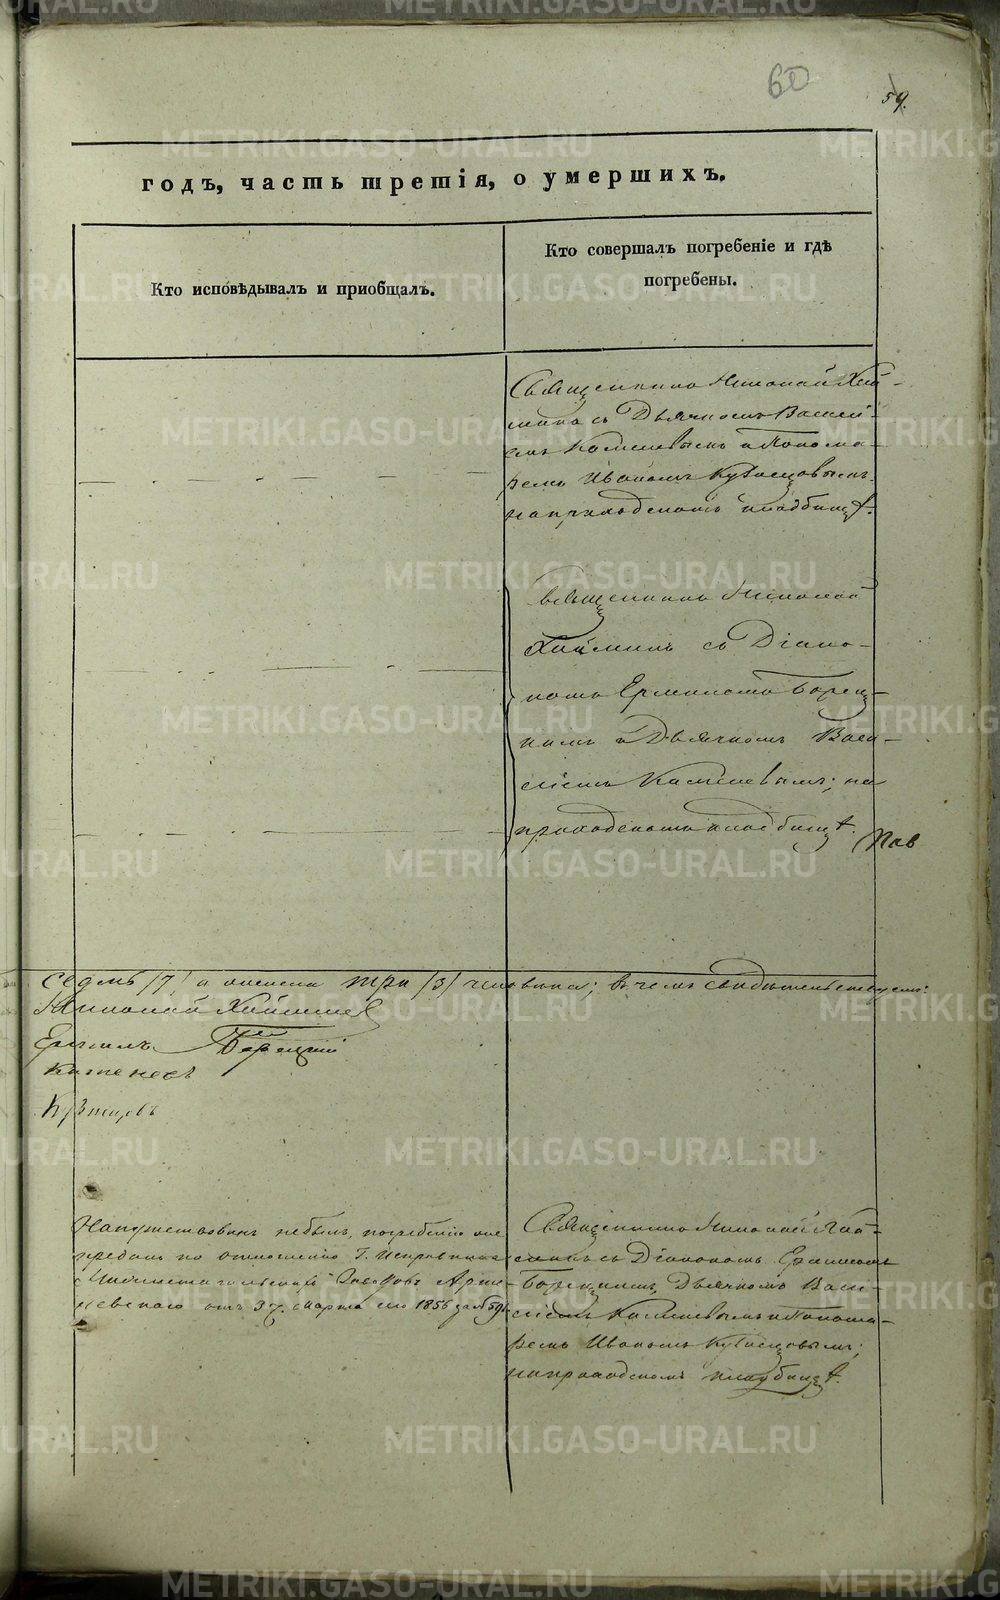 60
59.
годъ, часть третія, о умершихъ.
Кто исповѣдывалъ и приобщалъ.
Кто совершалъ погребеніе и гдѣ
погребены.
Священникъ Николай Хой-
минъ съ Дьячкомъ Васили-
емъ и Понома-
ремъ Иваномъ Кузнецовымъ.
на приходскомъ кладбищѣ.
Священникъ Николай
съ Діако-
номъ Ермиломъ Борец-
кимъ и Дьячкомъ Васи-
ліемъ на
приходскомъ кладбищѣ.
седмь /7/ и три /3/ человѣка; въ чемъ свидѣтельствуемъ:
Николай
Ермилъ Борецкій
Кузнецовъ
Напутствованъ небылъ, погребенію
преданъ по отношенію Г. Исправника
Заводовъ
отъ 3го марта 1856 за № 59м
Священникъ Николай
съ Діакономъ Ермиломъ
Борецкимъ, Дьячкомъ Васи-
ліемъ и Понома-
ремъ Иваномъ Кузнецовымъ;
на приходскомъ кладбищѣ.
METRIKI.GASO-URAL.RU